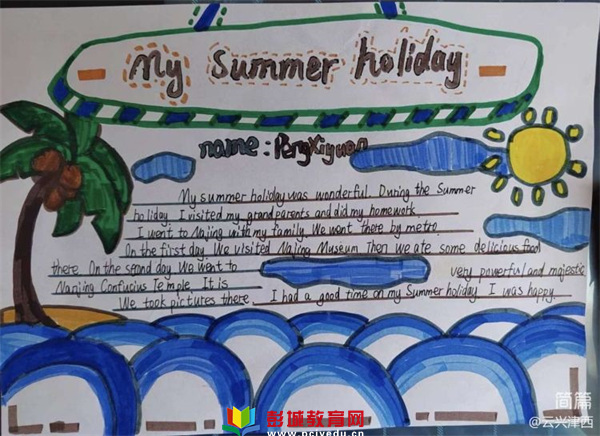 My summer holiday
name: PengXiyuan
My summer holiday was wonderful. During the Summer
holiday. I visited my grandparents and did my homework
I went to Najing with my family. We went there by metro.
On the first day, We visited Najing Museum Then we ate some delicious food
there. On the second day We went to very powerful and majestic
Nanjing Confucius Temple. It is
We took pictures there I had a good time on my Summer holiday I was happy.
简篇
@云兴津西
彭城教育网
www.pcjyedu.cn